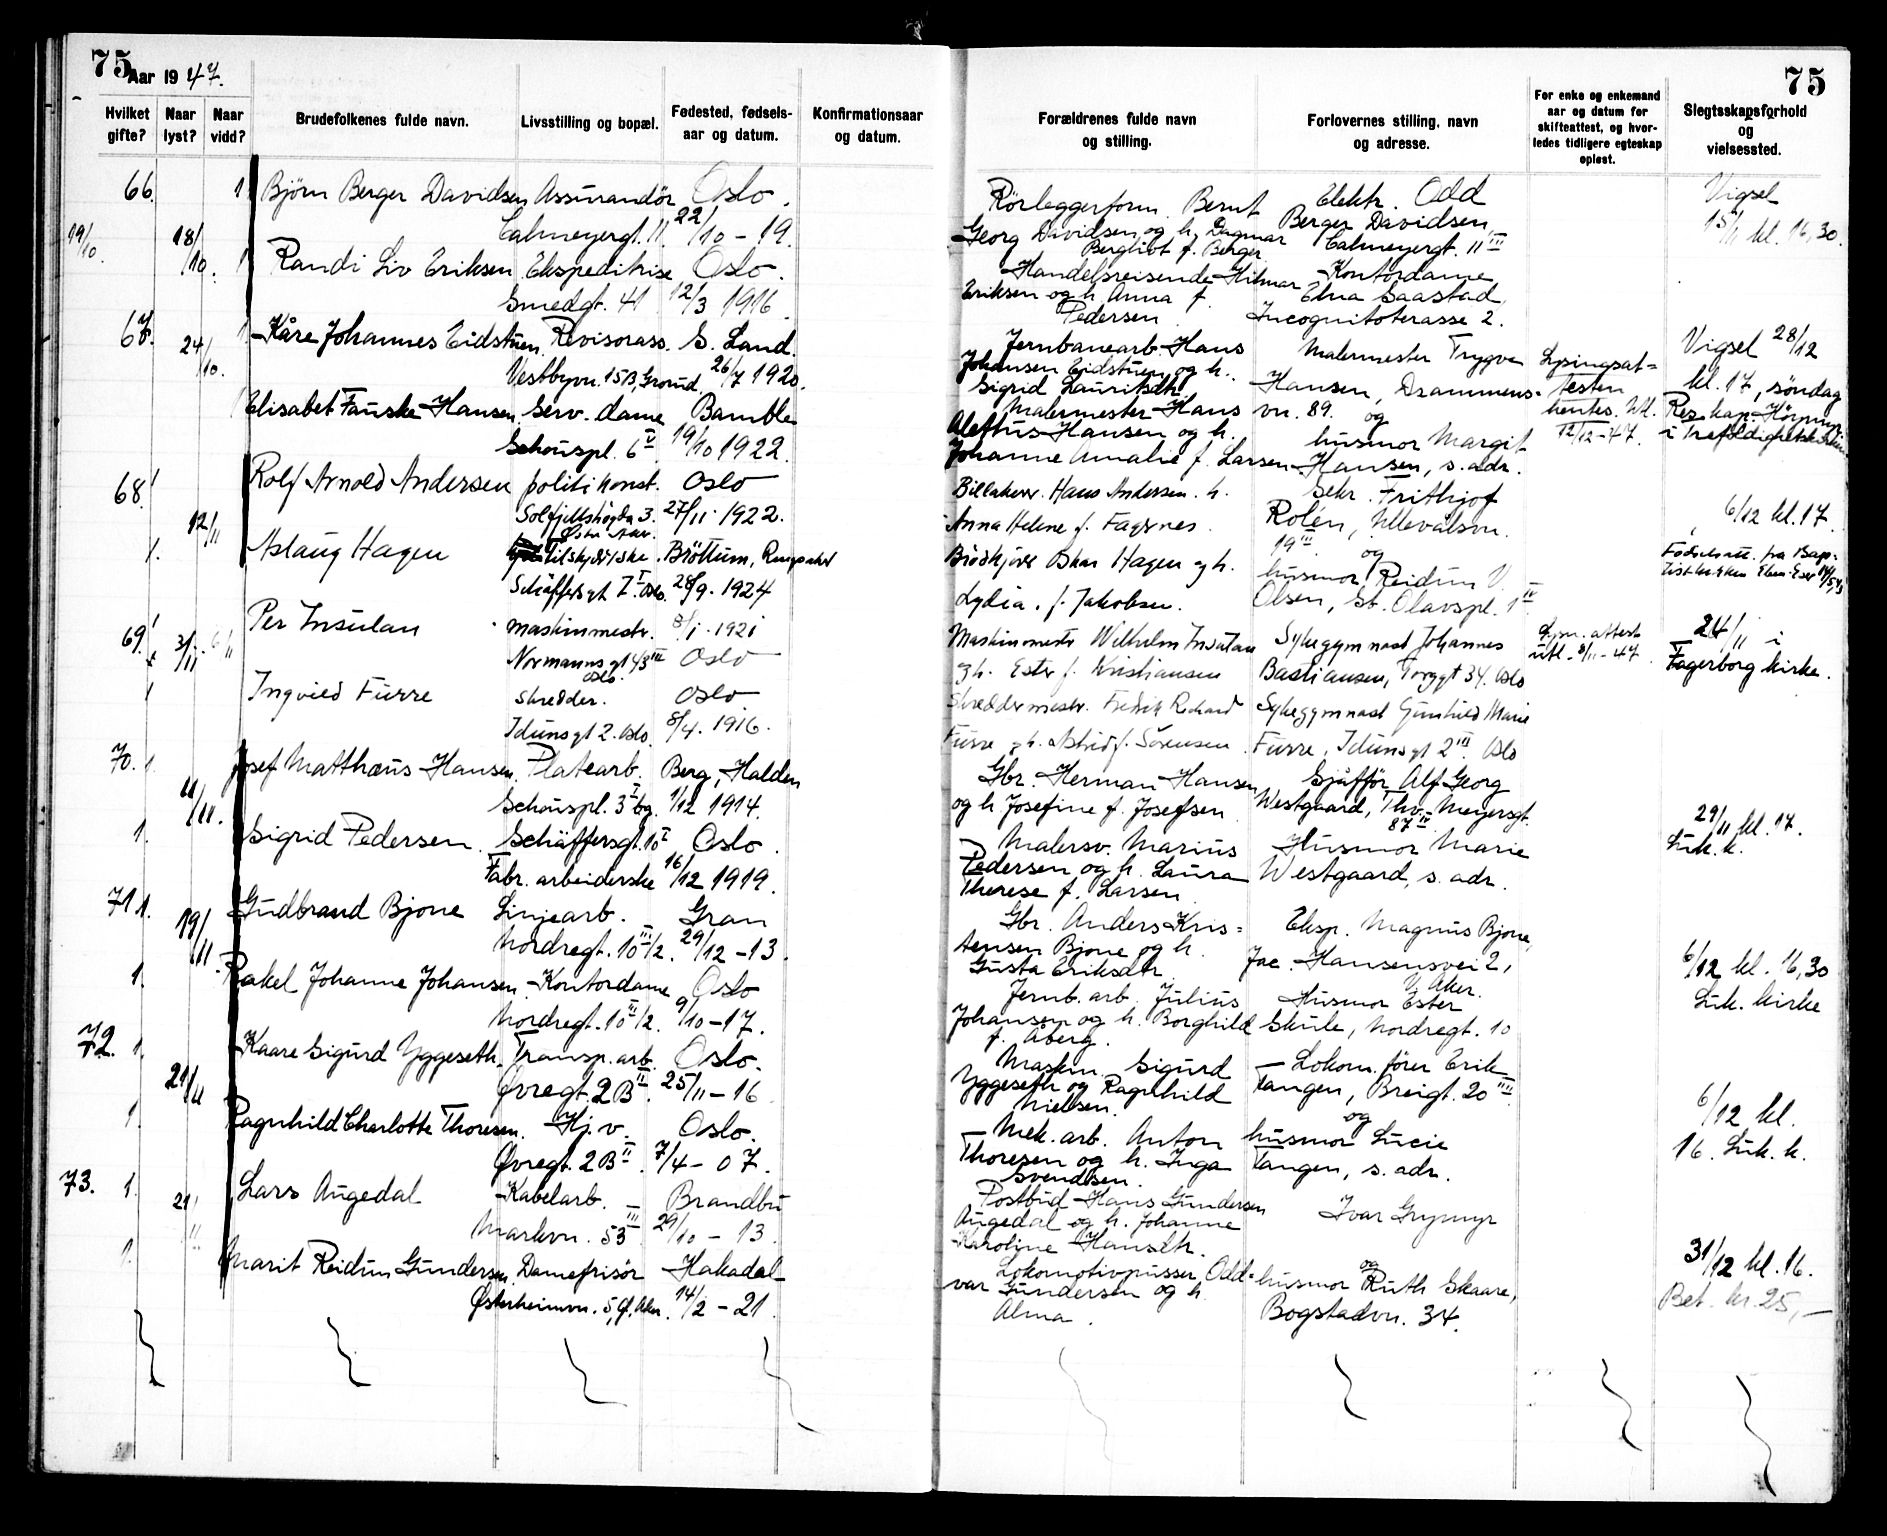 75
Aar 1947.
Hvilket gifte?
Naar lyst?
Naar vidd?
Brudefolkenes fulde navn.
Livsstilling og bopæl.
Fødested, fødsels-
aar og datum.
Konfirmationsaar
og datum.
66. 1 Bjørn Berger Davidsen Assurandør Oslo.
19/10. 18/10. Calmeyergt. 11. 22/10 - 19.
1 Randi Liv Eriksen Ekspeditrise Oslo.
Smedgt. 41 12/3 1916.
67. 24/10. 1 Kåre Johannes Eidstuen. Revisorass. S. Land.
Vestbyvn. 15B, Grorud. 26/7 1920.
1 Elisabet Fauske Hansen. Serv. dame Bamble
Schouspl. 6 V. 19/10 1922.
68. 1 Rolf Arnold Andersen politikonst. Oslo
12/11 Solfjellshøgda 3. 27/11. 1922.
Østre Aker.
1. Aslaug Hagen Tilskjærske. Brøttum, Ringsaker
Schäffersgt 7 I. Oslo. 28/9. 1924
69. 1 3/11. Per Insulan maskinmestr. 8/1. 1921
Normannsgt 43 III Oslo
Oslo.
1 Ingvild Furre Skredder. Oslo
Idunsgt 2. Oslo. 8/4. 1916.
70. 1. Josef Matthæus Hansen. Platearb. Berg, Halden
11/11. Schouspl. 3 I bg. 1/12 1914.
1. Sigrid Pedersen. Schäffersgt. 10 I Oslo.
Fabr. arbeiderske 16/12 1919.
71 1. Gudbrand Bjone Linjearb. Gran
19/11. Nordregt. 10 III/2. 29/12 - 13.
1. Rakel Johanne Johansen. Kontordame Oslo
Nordregt. 10 III/2. 9/10 - 17.
72. 1. Kaare Sigurd Yggeseth. Transp. arb. Oslo.
21/11 Øvregt. 2B II. 25/11 - 16
1. Ragnhild Charlotte Thoresen. Hj. v. Oslo.
Øvregt. 2B II. 7/4 - 07.
73. 1. 21/11 Lars Augedal Kabelarb. Brandbu
Markvn. 53 III 29/10 - 13.
1. Marit Reidun Gundersen. Damefrisør Hakadal
Østerheimvn. 5, Ø. Aker. 14/2 - 21.
75
Forældrenes fulde navn
og stilling.
Forlovernes stilling, navn
og adresse.
For enke og enkemand
aar og datum for
skifteattest, og hvor-
ledes tidligere egteskap
opløst.
Slegtsskapsforhold
og
vielsessted.
Rørleggerform. Bernt Elektr. Odd Vigsel
Georg Davidsen og h. Dagmar Berger Davidsen, 15/11 kl. 16,30.
Bergliot f. Berger Calmeyergt. 11 III
Handelsreisende Hilmar Kontordame
Eriksen og h. Anna f. Elna Saastad,
Pedersen. Incognitoterasse 2.
Jernbanearb. Hans Malermester Trygve Lysingsat- Vigsel 28/12
Johansen Eidstuen og h. Hansen, Drammens- testen kl. 17, søndag
Sigrid Lauritsdtr. vn. 89. og hentes. Utl. Res. kap.
Malermester Hans 12/12-47. i Trefoldighetskirken
Alettus Hansen og h. husmor Margit
Johanne Amalie f. Larsen. Hansen, s. adr.
Billakerer. Hans Andersen. h. Sekr. Frithjof
Anna Helene f. Fagernes. Rolén, Ullevålsvn. 6/12 kl. 17
19 III og
Brødkjører Oskar Hagen og h. husmor Reidun V. Fødselsatt. fra Bap-
Lydia. f. Jakobsen. Olsen, St. Olavspl. 1 IV tistkirken Eben-Eser
Maskinmestr Wilhelm Insulan Sykegymnast Johannes Lysn. attest 24/11 i
og h. Ester f. Kristiansen Bastiansen, Torggt 34. Oslo utl. 8/11-47 Fagerborg kirke.
Skreddermestr. Fredrik Richard Sykegymnast Gunhild Marie
Furre og h. Astrid f. Sørensen. Furre, Idunsgt 2 III Oslo
Gbr. Herman Hansen Sjåfför Alf Georg
og h Josefine f. Josefsen Westgaard, Thv. Meyersgt. 29/11 kl. 17.
87 III
Malersv. Marius Husmor Marie Luk. k.
Pedersen og h. Laura Westgaard, s. adr.
Therese f. Larsen
Gbr. Anders Kris- Eksp. Magnus Bjone,
tensen Bjone og h. Jac. Hansensvei 2, 6/12 kl. 16,30
Gusta Eriksdtr. V. Aker.
Jernb. arb. Julius Husmor Ester Luk. kirke
Johansen og h. Borghild Skule, Nordregt. 10
f. Åberg.
Maskin. Sigurd Lokom. fører Erik
Yggeseth og Ragnhild Tangen, Breigt. 20 III 6/12 kl.
Nielsen. og
Mek. arb. Anton husmor Lucie 16. Luk. k.
Thoresen og h. Inga Tangen, s. adr.
Svendsen.
Postbud Hans Gundersen Ivar Grymyr
Augedal og h. Johanne
Karoline Hansdtr. og 31/12 kl. 16.
Lokomotivpusser Odd- husmor Ruth Skaare, Bet. kr. 25,-
var Gundersen og h. Bogstadvn. 34.
Alma.